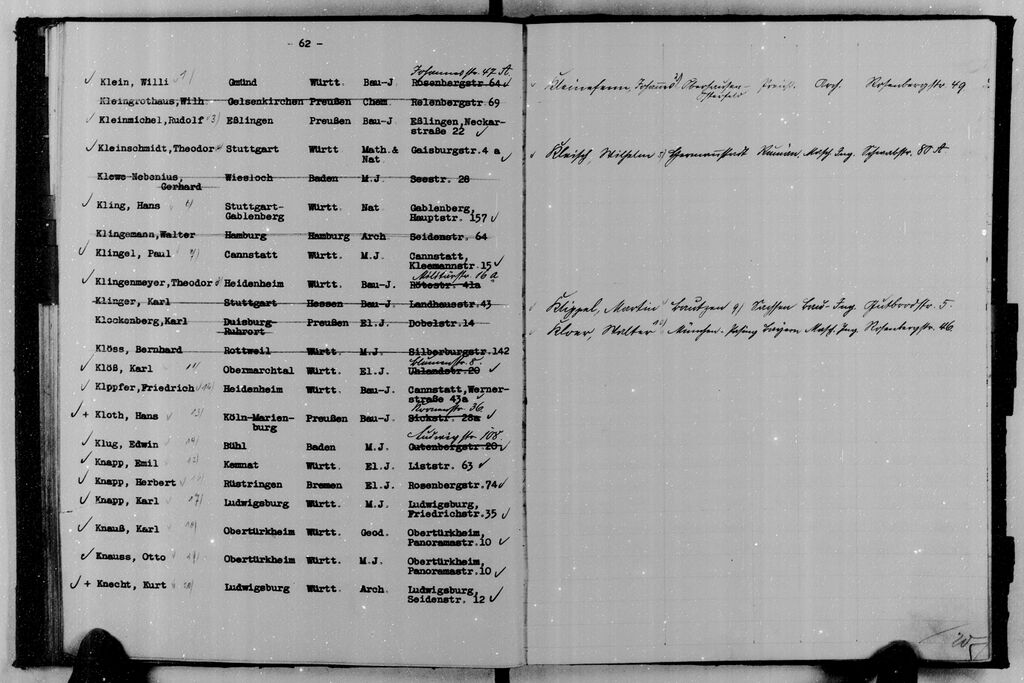 - 62 -
Johannesstr. 47 A.
✓ Klein, Willi 1) Gmünd Württ. Bau-J Rosenbergstr 64 ✓
Kleingrothaus,Wilh Gelsenkirchen Preußen Chem. Relenbergstr 69
✓ Kleinmichel,Rudolf 3) Eßlingen Preußen Bau-J Eßlingen,Neckar-
straße 22 ✓
✓ Kleinschmidt,Theodor Stuttgart Württ Math.& Gaisburgstr.4 a ✓
Nat
Klewe-Nebenius, Wiesloch Baden M.J. Seestr. 28
Gerhard
✓ Kling, Hans Stuttgart- Württ. Nat Gablenberg,
Gablenberg Hauptstr. 157 ✓
Klingemann,Walter Hamburg Hamburg Arch Seidenstr. 64
✓ Klingel, Paul Cannstatt Württ. M.J. Cannstatt,
Kleemannstr.15 ✓
16 a
✓ Klingenmeyer,Theodor Heidenheim Württ. Bau-J. Rötestr. 41a
Klinger, Karl Stuttgart Hessen Bau-J Landhausstr.43
Klockenberg,Karl Duisburg- Preußen El.J. Dobelstr.14
Ruhrort
Klöss, Bernhard Rottweil Württ. M.J. Silberburgstr.142
Blumenstr. 8.
✓ Klöß, Karl 11) Obermarchtal Württ. El.J. Uhlandstr.20 ✓
✓ Klppfer,Friedrich Heidenheim Württ. Bau-J. Cannstatt,Werner-
straße 43a ✓
36.
✓ + Kloth, Hans 13) Köln-Marien- Preußen Bau-J. Sickstr. 28a ✓
burg
Ludwigstr. 108.
✓ Klug, Edwin 14) Bühl Baden M.J. Gutenbergstr 20 ✓
✓ Knapp, Emil Kemnat Württ. El.J. Liststr. 63 ✓
✓ Knapp, Herbert Rüstringen Bremen El.J. Rosenbergstr.74 ✓
✓ Knapp, Karl 17) Ludwigsburg Württ. M.J. Ludwigsburg,
Friedrichstr.35 ✓
✓ Knauß, Karl 18) Obertürkheim Württ. Geod. Obertürkheim,
Panoramastr.10 ✓
✓ Knauss, Otto Obertürkheim Württ. M.J. Obertürkheim,
Panoramastr.10 ✓
✓ + Knecht, Kurt 20) Ludwigsburg Württ. Arch Ludwigsburg,
Seidenstr. 12 ✓
Johannes 2) Oberhausen- Preuß. Arch. Rosenbergstr 49
✓ Kleisch, Wilhelm Hermannstadt Rumän. Masch. Ing. Schwabstr. 80 A
✓ Klippel, Martin Bautzen 9) Sachsen Bau-Ing. Gutbrodstr. 5.
✓ Kloer, Walter 10) München-Pasing Bayern Masch. Ing. Rosenbergstr. 46